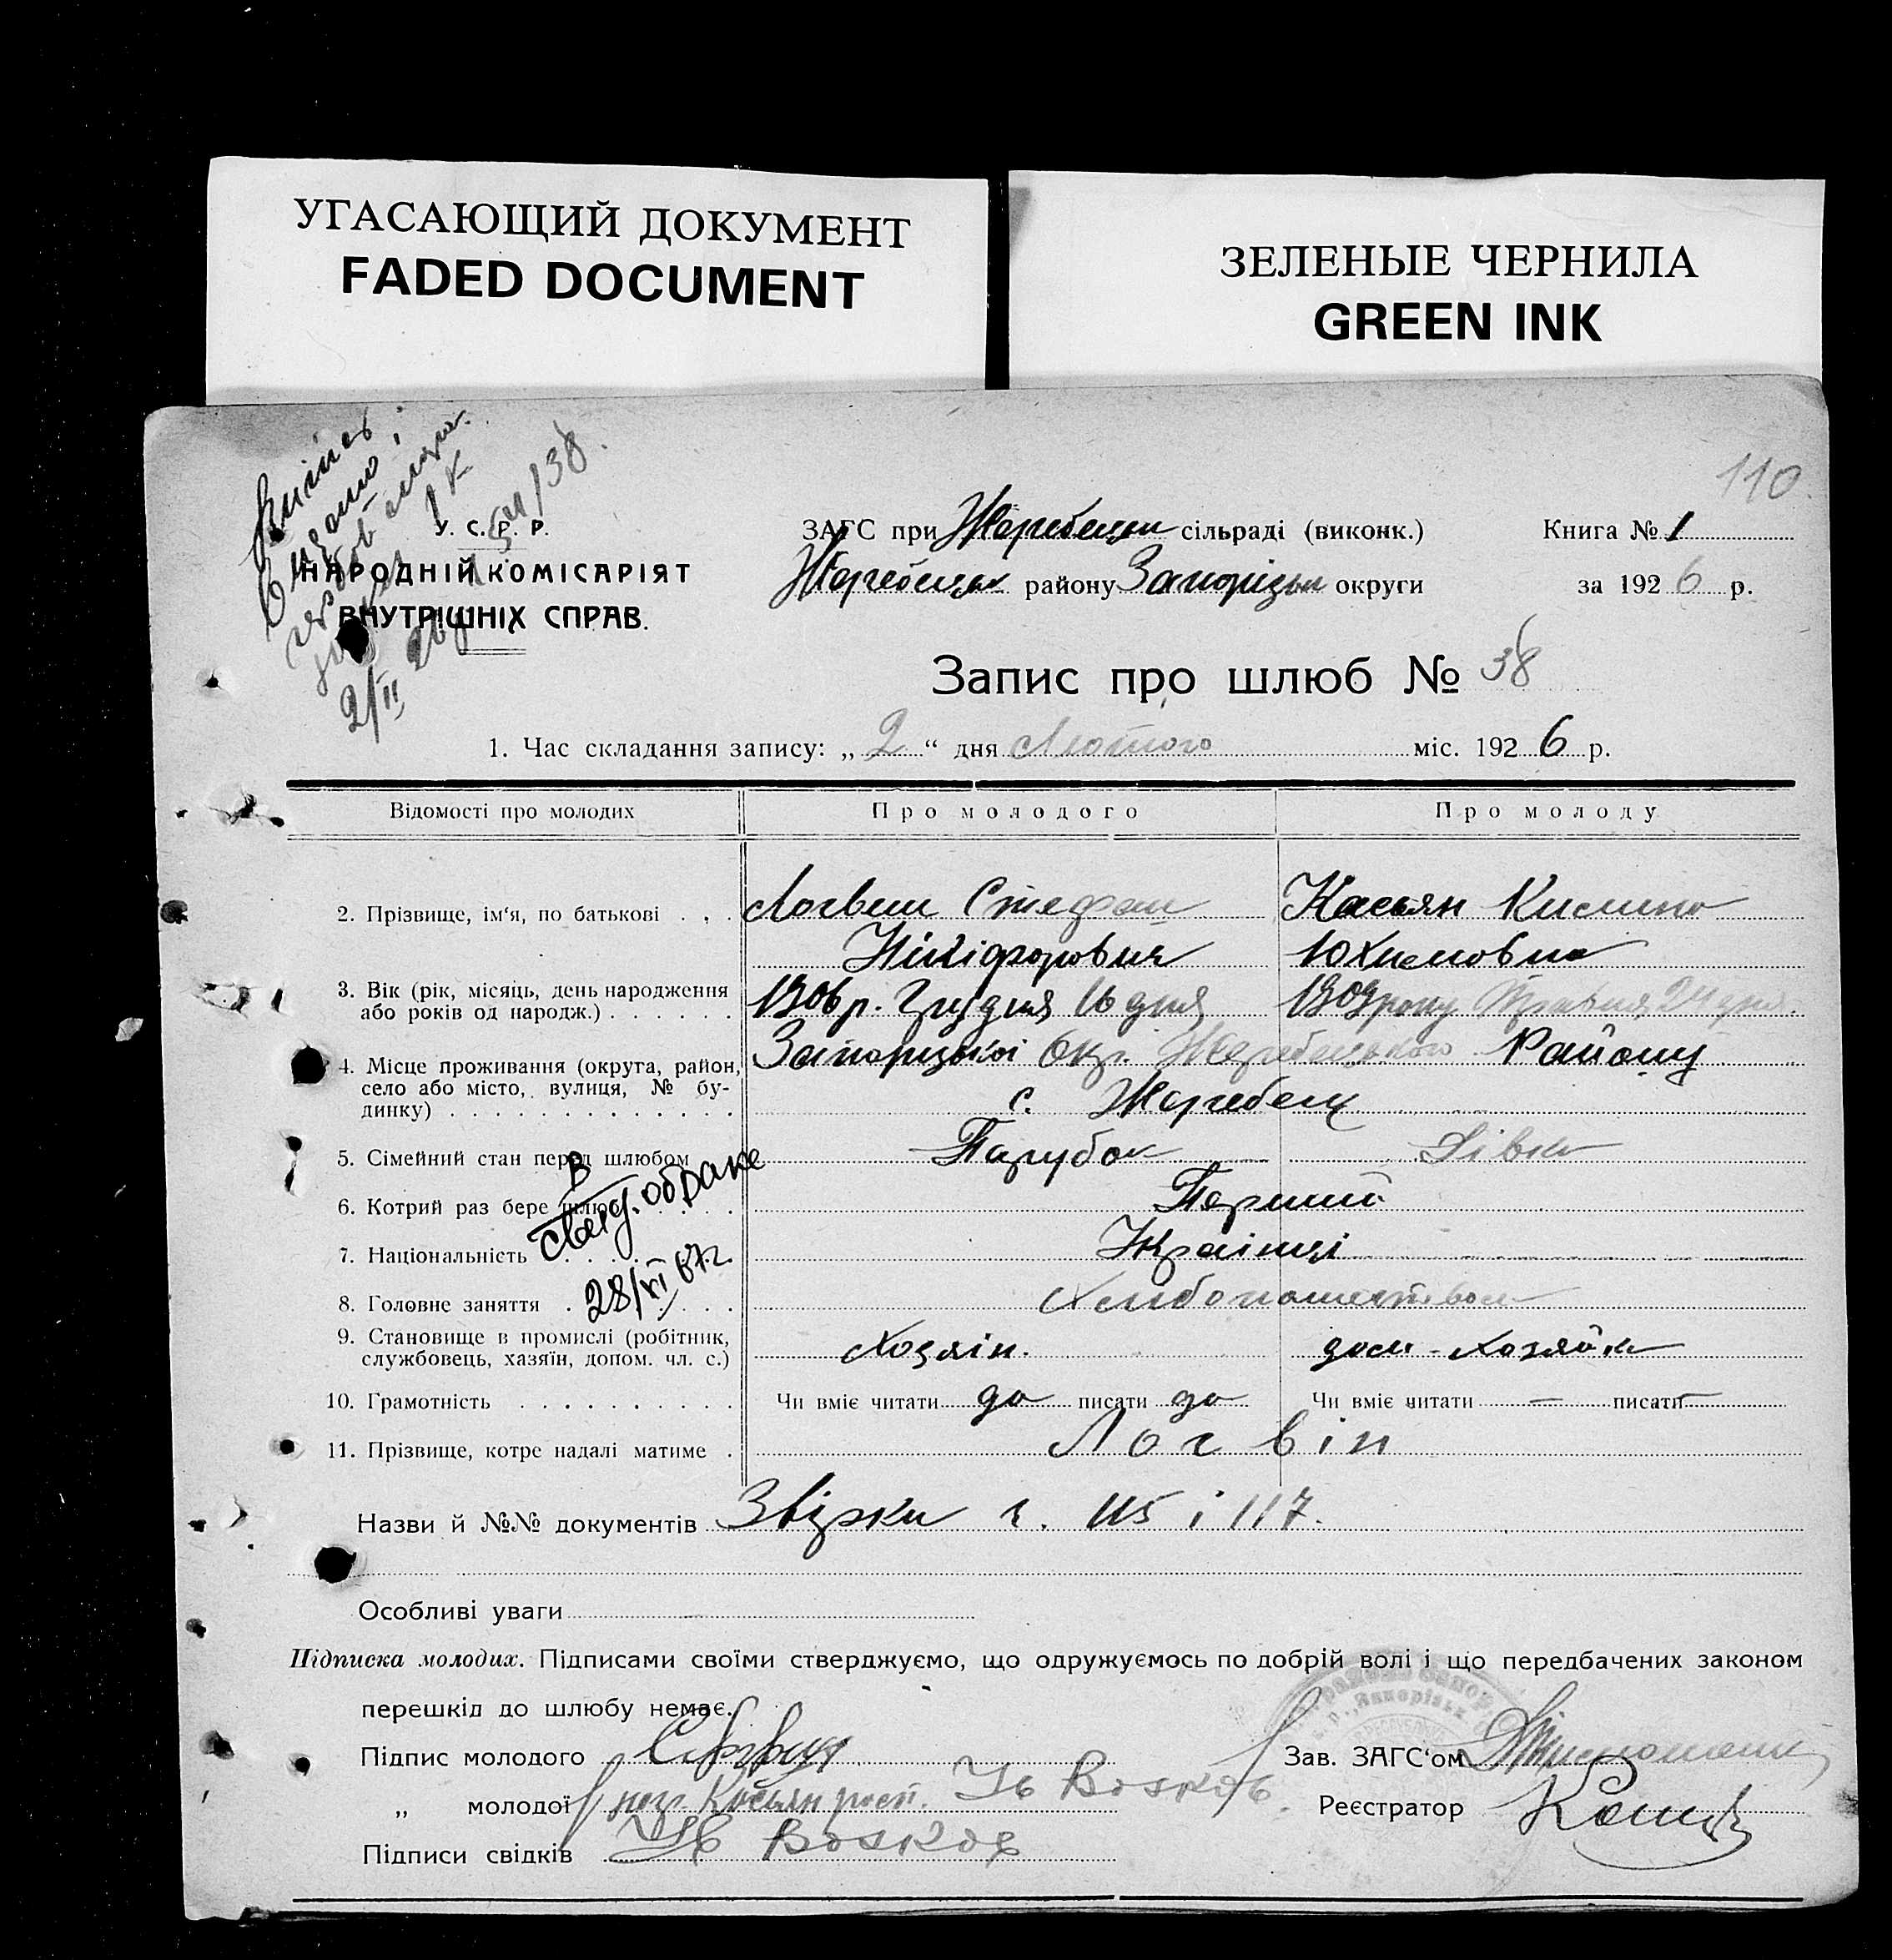 УГАСАЮЩИЙ ДОКУМЕНТ
FADED DOCUMENT
ЗЕЛЕНЫЕ ЧЕРНИЛА
GREEN INK
110
У. С. Р. Р.
НАРОДНІЙ КОМІСАРІЯТ
ВНУТРІШНІХ СПРАВ.
2/II 26
ЗАГС при Жеребецьк сільраді (виконк.)
Жеребецьк району Запорізьк округи
Книга № 1
за 1926 р.
Запис про шлюб № 38
1. Час складання запису: „ 2 “ дня Лютого міс. 1926 р.
Відомості про молодих Про молодого Про молоду
2. Прізвище, ім'я, по батькові . . . Логвин Стефан Касьян Килина
Нікіфорович Юхимовна
3. Вік (рік, місяць, день народження або років од народж.) . . . . . . 1906 р. Грудня 16 дня 1909 року Травня 24 дня.
4. Місце проживання (округа, район, село або місто, вулиця, № будинку) . . . . . . . . . . . . . Запорізької Окр. Жеребецького Району
с. Жеребець
5. Сімейний стан перед шлюбом Парубок Дівка
6. Котрий раз бере шлюб . . . . Перший
7. Національність . . . . . . . Українці
В свид. о браке
28/XI 67г.
8. Головне заняття . . . . . . Хлібопашеством
9. Становище в промислі (робітник, службовець, хазяїн, допом. чл. с.) Хозяін. дом-хозяйка
10. Грамотність . . . . . . . . . . Чи вміє читати да писати да Чи вміє читати — писати —
11. Прізвище, котре надалі матиме . Логвін
Назви й №№ документів Звірки ч. 115 і 117.
Особливі уваги
Підписка молодих. Підписами своїми стверджуємо, що одружуємось по добрій волі і що передбачених законом
перешкід до шлюбу немає.
Підпис молодого
„ молодої Касьян
Підписи свідків
Зав. ЗАГС'ом
Реєстратор